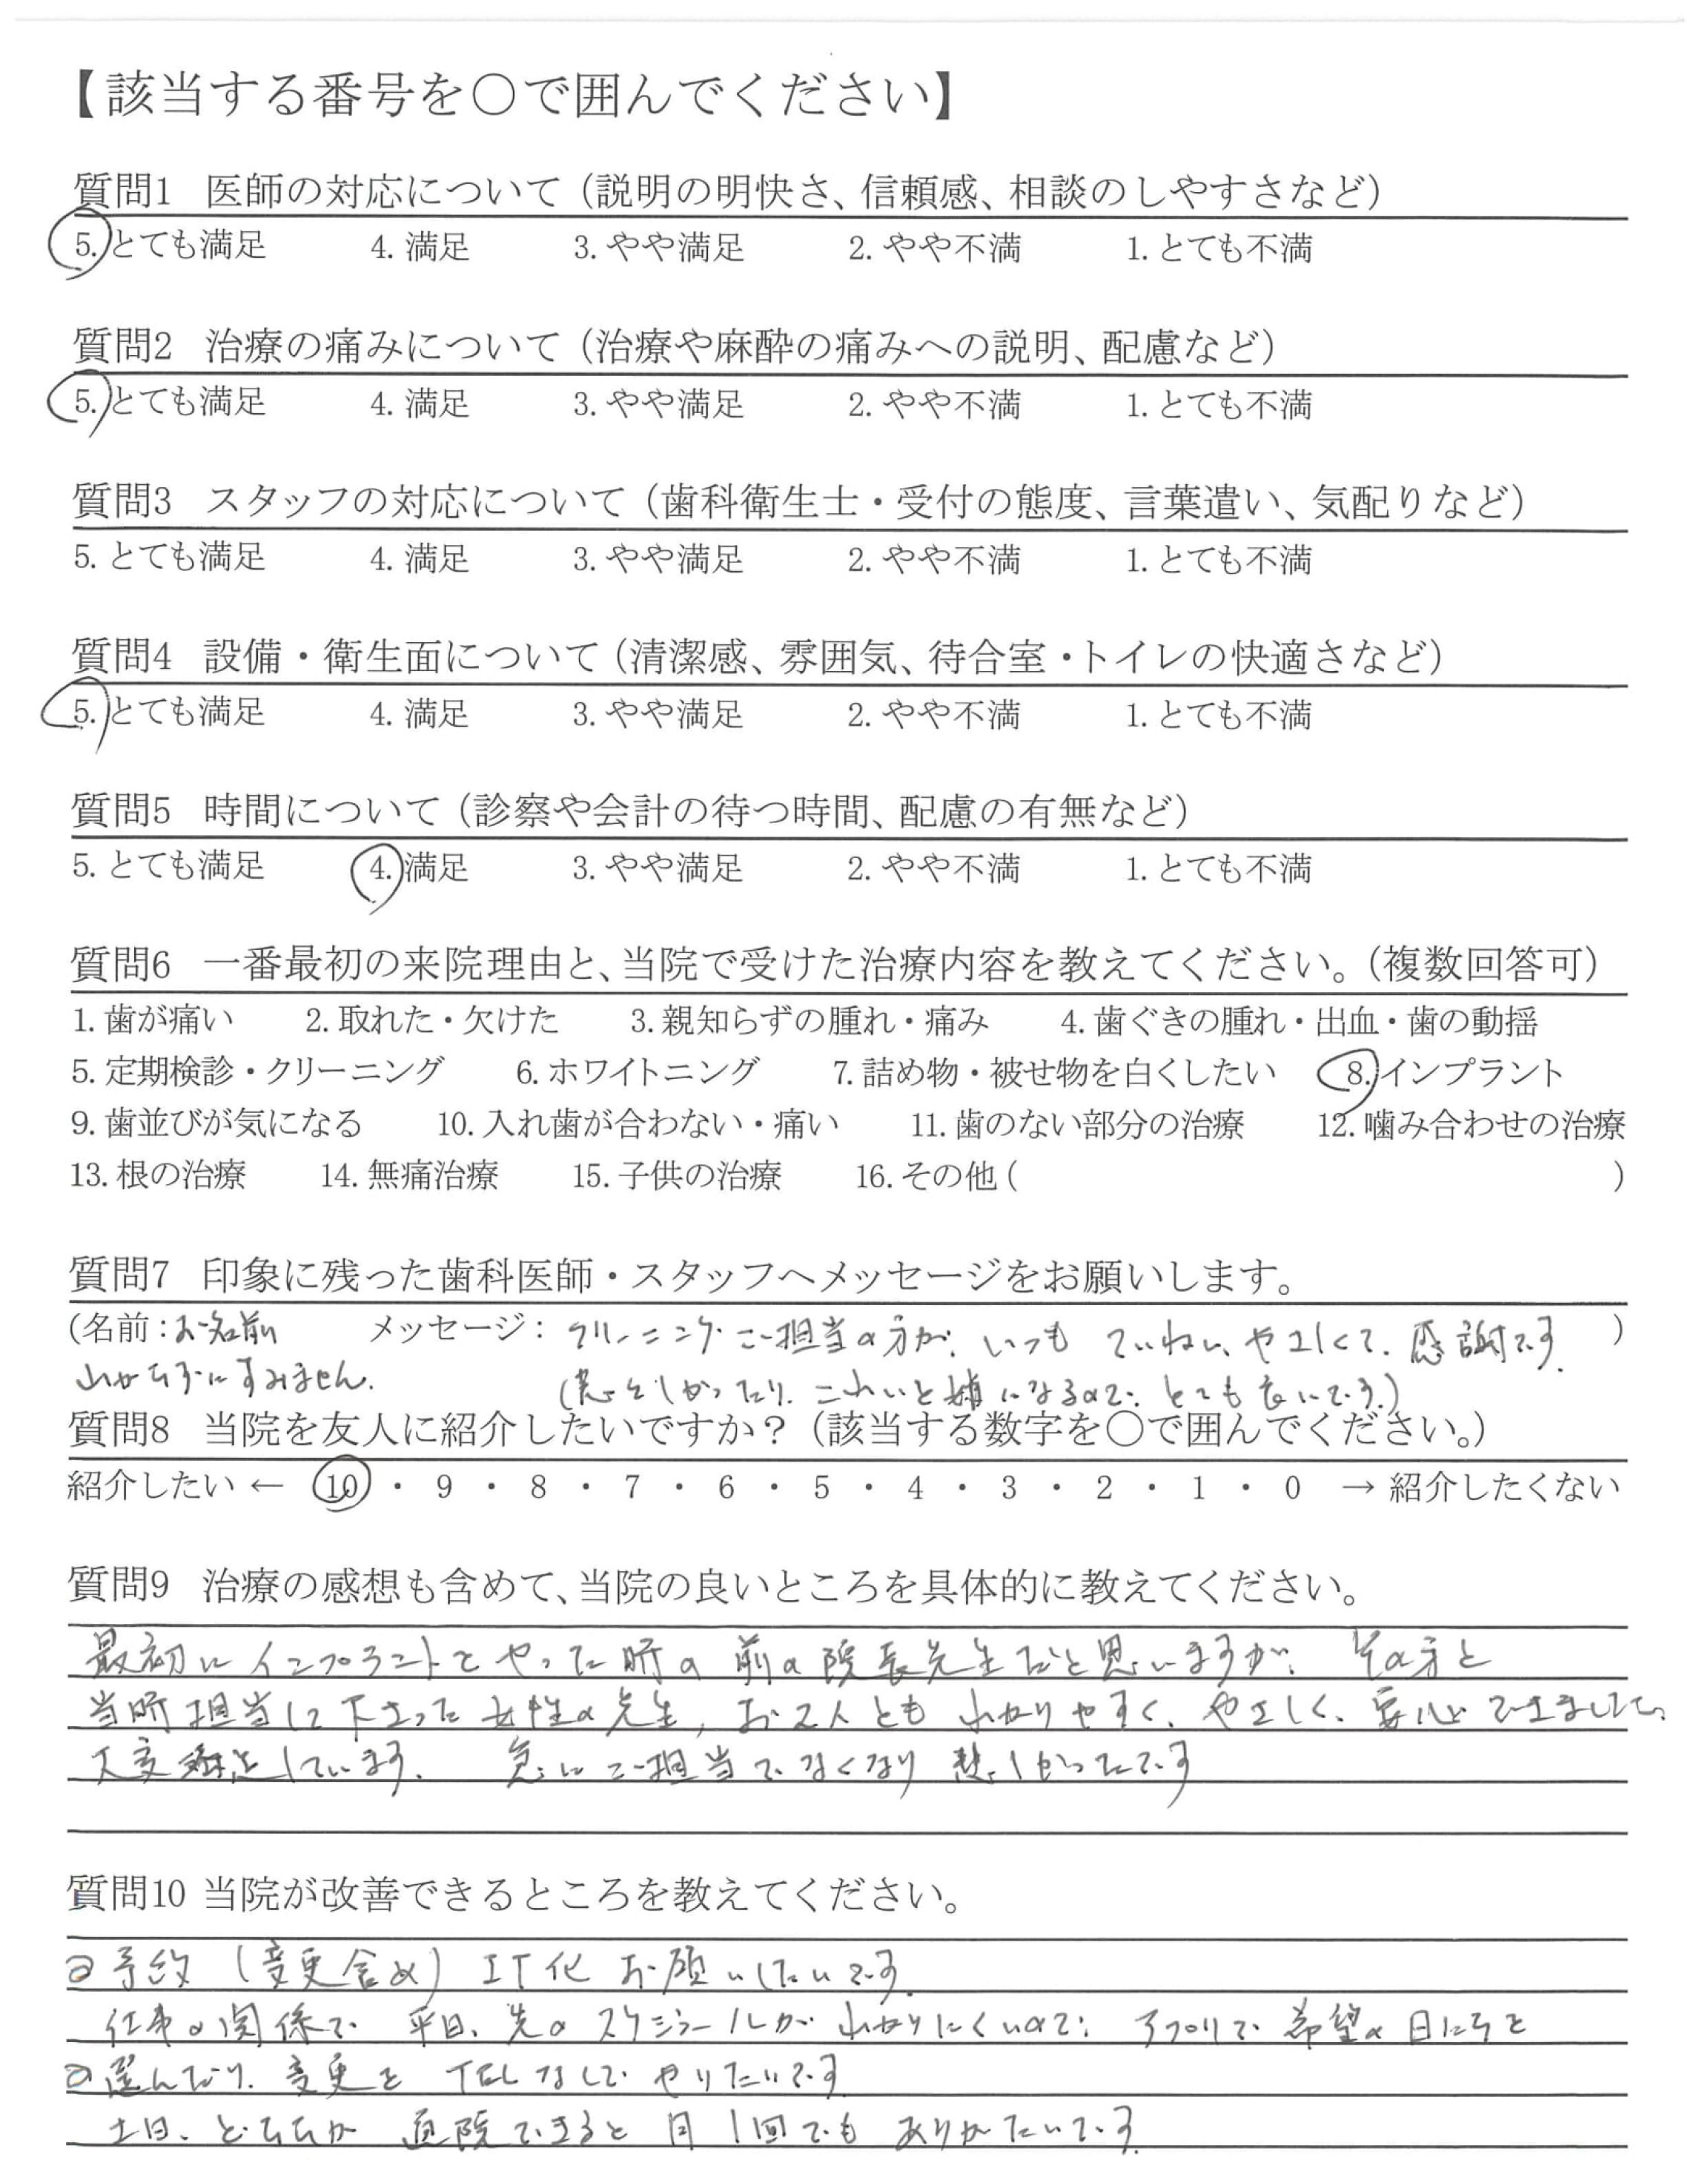 【該当する番号を○で囲んでください】
質問1 医師の対応について（説明の明快さ、信頼感、相談のしやすさなど）
5. とても満足 4. 満足 3. やや満足 2. やや不満 1. とても不満
質問2 治療の痛みについて（治療や麻酔の痛みへの説明、配慮など）
5. とても満足 4. 満足 3. やや満足 2. やや不満 1. とても不満
質問3 スタッフの対応について（歯科衛生士・受付の態度、言葉遣い、気配りなど）
5. とても満足 4. 満足 3. やや満足 2. やや不満 1. とても不満
質問4 設備・衛生面について（清潔感、雰囲気、待合室・トイレの快適さなど）
5. とても満足 4. 満足 3. やや満足 2. やや不満 1. とても不満
質問5 時間について（診察や会計の待つ時間、配慮の有無など）
5. とても満足 4. 満足 3. やや満足 2. やや不満 1. とても不満
質問6 一番最初の来院理由と、当院で受けた治療内容を教えてください。（複数回答可）
1. 歯が痛い 2. 取れた・欠けた 3. 親知らずの腫れ・痛み 4. 歯ぐきの腫れ・出血・歯の動揺
5. 定期検診・クリーニング 6. ホワイトニング 7. 詰め物・被せ物を白くしたい 8. インプラント
9. 歯並びが気になる 10. 入れ歯が合わない・痛い 11. 歯のない部分の治療 12. 噛み合わせの治療
13. 根の治療 14. 無痛治療 15. 子供の治療 16. その他 ( )
質問7 印象に残った歯科医師・スタッフへメッセージをお願いします。
(名前：お名前 メッセージ： クリーニングご担当の方が、いつも ていねい、やさしくて、感謝です )
わからずにすみません。 になるので、とても
質問8 当院を友人に紹介したいですか？（該当する数字を○で囲んでください。）
紹介したい ← 10 ・ 9 ・ 8 ・ 7 ・ 6 ・ 5 ・ 4 ・ 3 ・ 2 ・ 1 ・ 0 → 紹介したくない
質問9 治療の感想も含めて、当院の良いところを具体的に教えてください。
最初にインプラントをやった時の前の院長先生だと思いますが、その方と
当時担当して下さった女性の先生、お2人ともわかりやすく、やさしく、安心できまして、
大変満足しています。 急にご担当でなくなり悲しかったです
質問10 当院が改善できるところを教えてください。
○予約（変更含め）IT化お願いしたいです。
仕事の関係で、平日、先のスケジュールがわかりにくいので、アプリで希望の日にちを
○選んだり、変更をTELなしでやりたいです
土日、どちらか通院できると月1回でもありがたいです。